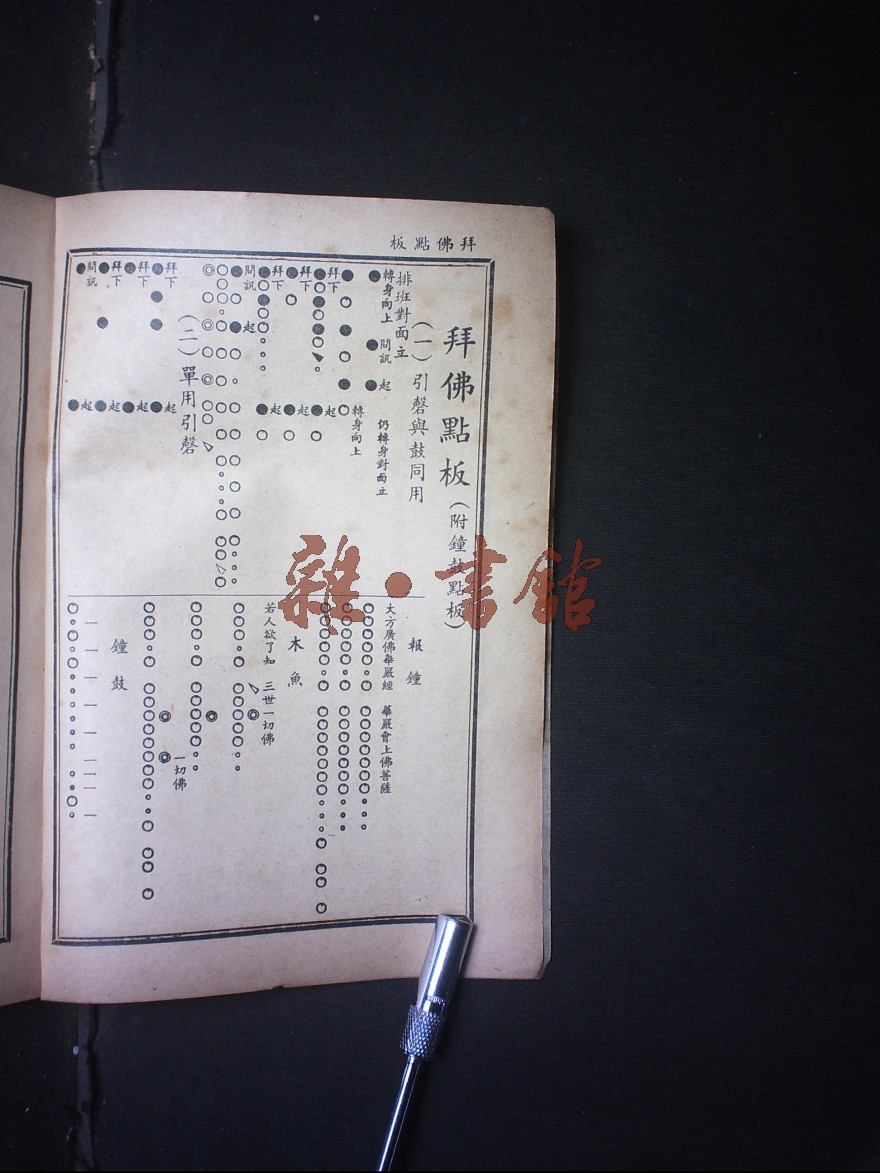 板點佛拜
拜佛點板（附鐘鼓點板）
（一）引磬與鼓同用
排班對面立
轉身向上 問訊 起 仍轉身對面立
轉身向上
拜下 起
拜下 起
拜下 起
問訊 起
（二）單用引磬
拜下 起
拜下 起
拜下 起
問訊 起
報鐘
大方廣佛華嚴經 華嚴會上佛菩薩
木魚
若人欲了知 三世一切佛
一切佛
鐘鼓
雜·書館